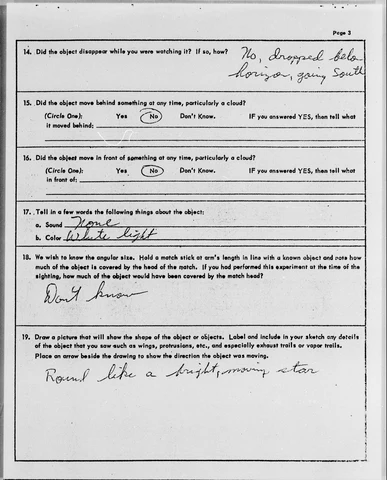 Page 3
14. Did the object disappear while you were watching it? If so, how?
No, dropped below
horizon, going South
15. Did the object move behind something at any time, particularly a cloud?
(Circle One): Yes No Don't Know. IF you answered YES, then tell what
it moved behind:
16. Did the object move in front of something at any time, particularly a cloud?
(Circle One): Yes No Don't Know. IF you answered YES, then tell what
in front of:
17. Tell in a few words the following things about the object:
a. Sound None
b. Color White light
18. We wish to know the angular size. Hold a match stick at arm's length in line with a known object and note how
much of the object is covered by the head of the match. If you had performed this experiment at the time of the
sighting, how much of the object would have been covered by the match head?
Don't know
19. Draw a picture that will show the shape of the object or objects. Label and include in your sketch any details
of the object that you saw such as wings, protrusions, etc., and especially exhaust trails or vapor trails.
Place an arrow beside the drawing to show the direction the object was moving.
Round like a bright, moving star